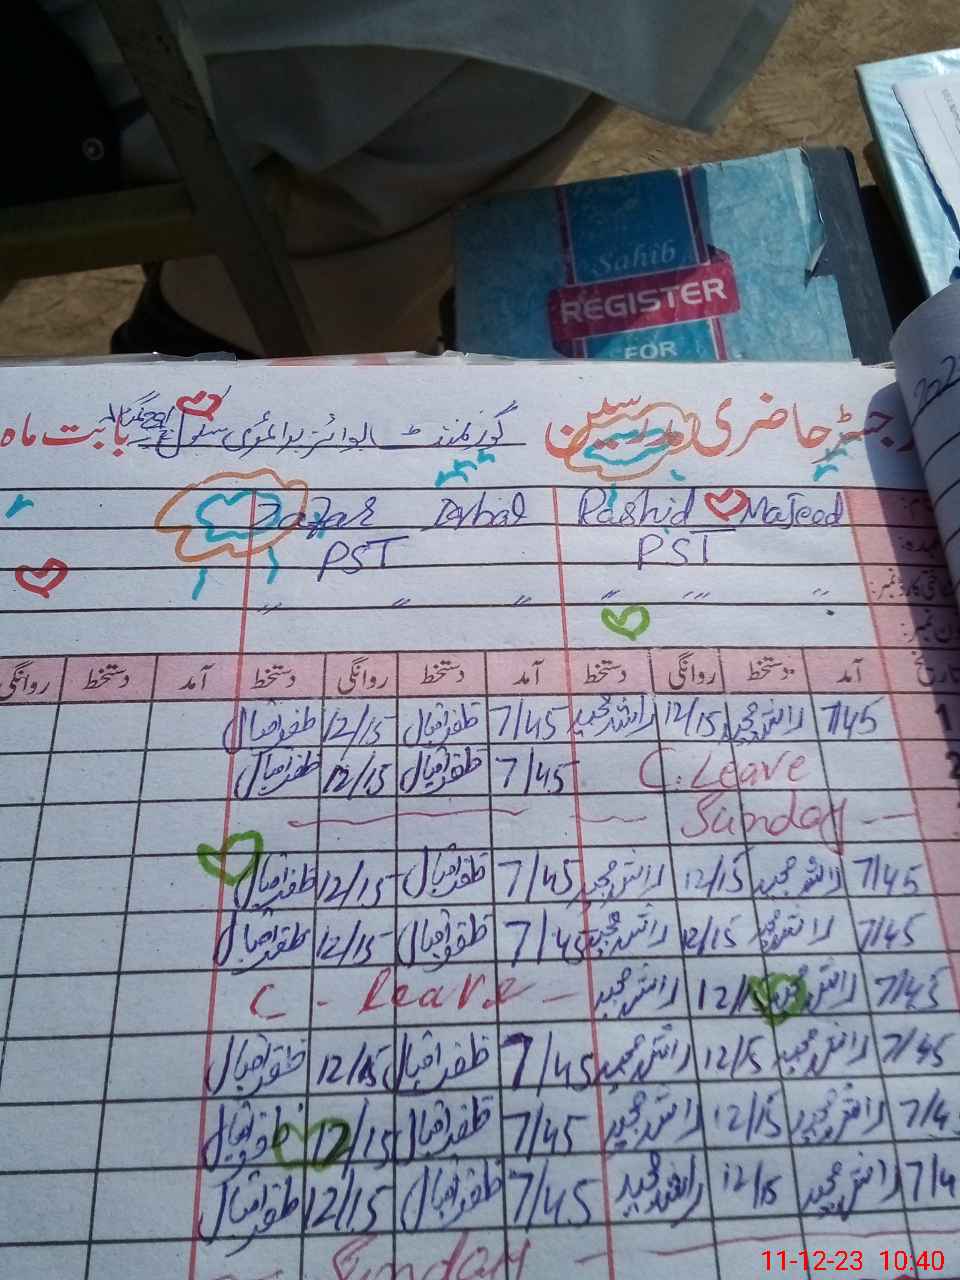 Sahib
REGISTER
FOR
رجسٹر حاضری مدرسین گورنمنٹ بوائز پرائمری سکول بابت ماہ
Rashid Majeed Zafar Iqbal
PST PST
آمد دستخط روانگی دستخط آمد دستخط روانگی دستخط آمد دستخط روانگی
1 7/45 راشد مجید 12/15 راشد مجید 7/45 ظفر اقبال 12/15 ظفر اقبال
2 C. Leave 7/45 ظفر اقبال 12/15 ظفر اقبال
Sunday
7/45 راشد مجید 12/15 راشد مجید 7/45 ظفر اقبال 12/15 ظفر اقبال
7/45 راشد مجید 12/15 راشد مجید 7/45 ظفر اقبال 12/15 ظفر اقبال
7/45 راشد مجید 12/15 راشد مجید C - Leave
7/45 راشد مجید 12/15 راشد مجید 7/45 ظفر اقبال 12/15 ظفر اقبال
7/4 راشد مجید 12/15 راشد مجید 7/45 ظفر اقبال 12/15 ظفر اقبال
7/4 راشد مجید 12/15 راشد مجید 7/45 ظفر اقبال 12/15 ظفر اقبال
Sunday
11-12-23 10:40